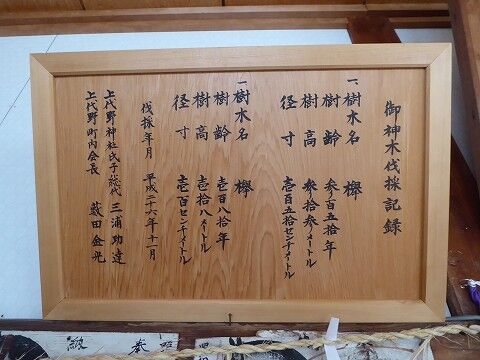 御神木伐採記録
一、樹木名 欅
樹齢 参百五拾年
樹高 参拾参メートル
径寸 壱百五拾センチメートル
一、樹木名 欅
樹齢 壱百八拾年
樹高 壱拾八メートル
径寸 壱百センチメートル
伐採年月 平成二十六年十一月
上代野神社氏子総代 三浦功達
上代野町内会長 薮田金光
奉